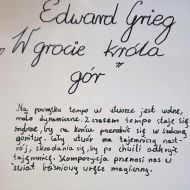 Edward Grieg
„W grocie króla
gór”
Na początku tempo w utworze jest wolne,
mało dynamiczne. Z czasem tempo staje się
szybsze, by na końcu przerodzić się w szaloną
gonitwę. Cały utwór ma tajemniczy nast-
rój, skradania się, by po chwili odkryć
tajemnicę. Kompozycja przenosi nas w
świat baśniowy wręcz magiczny.